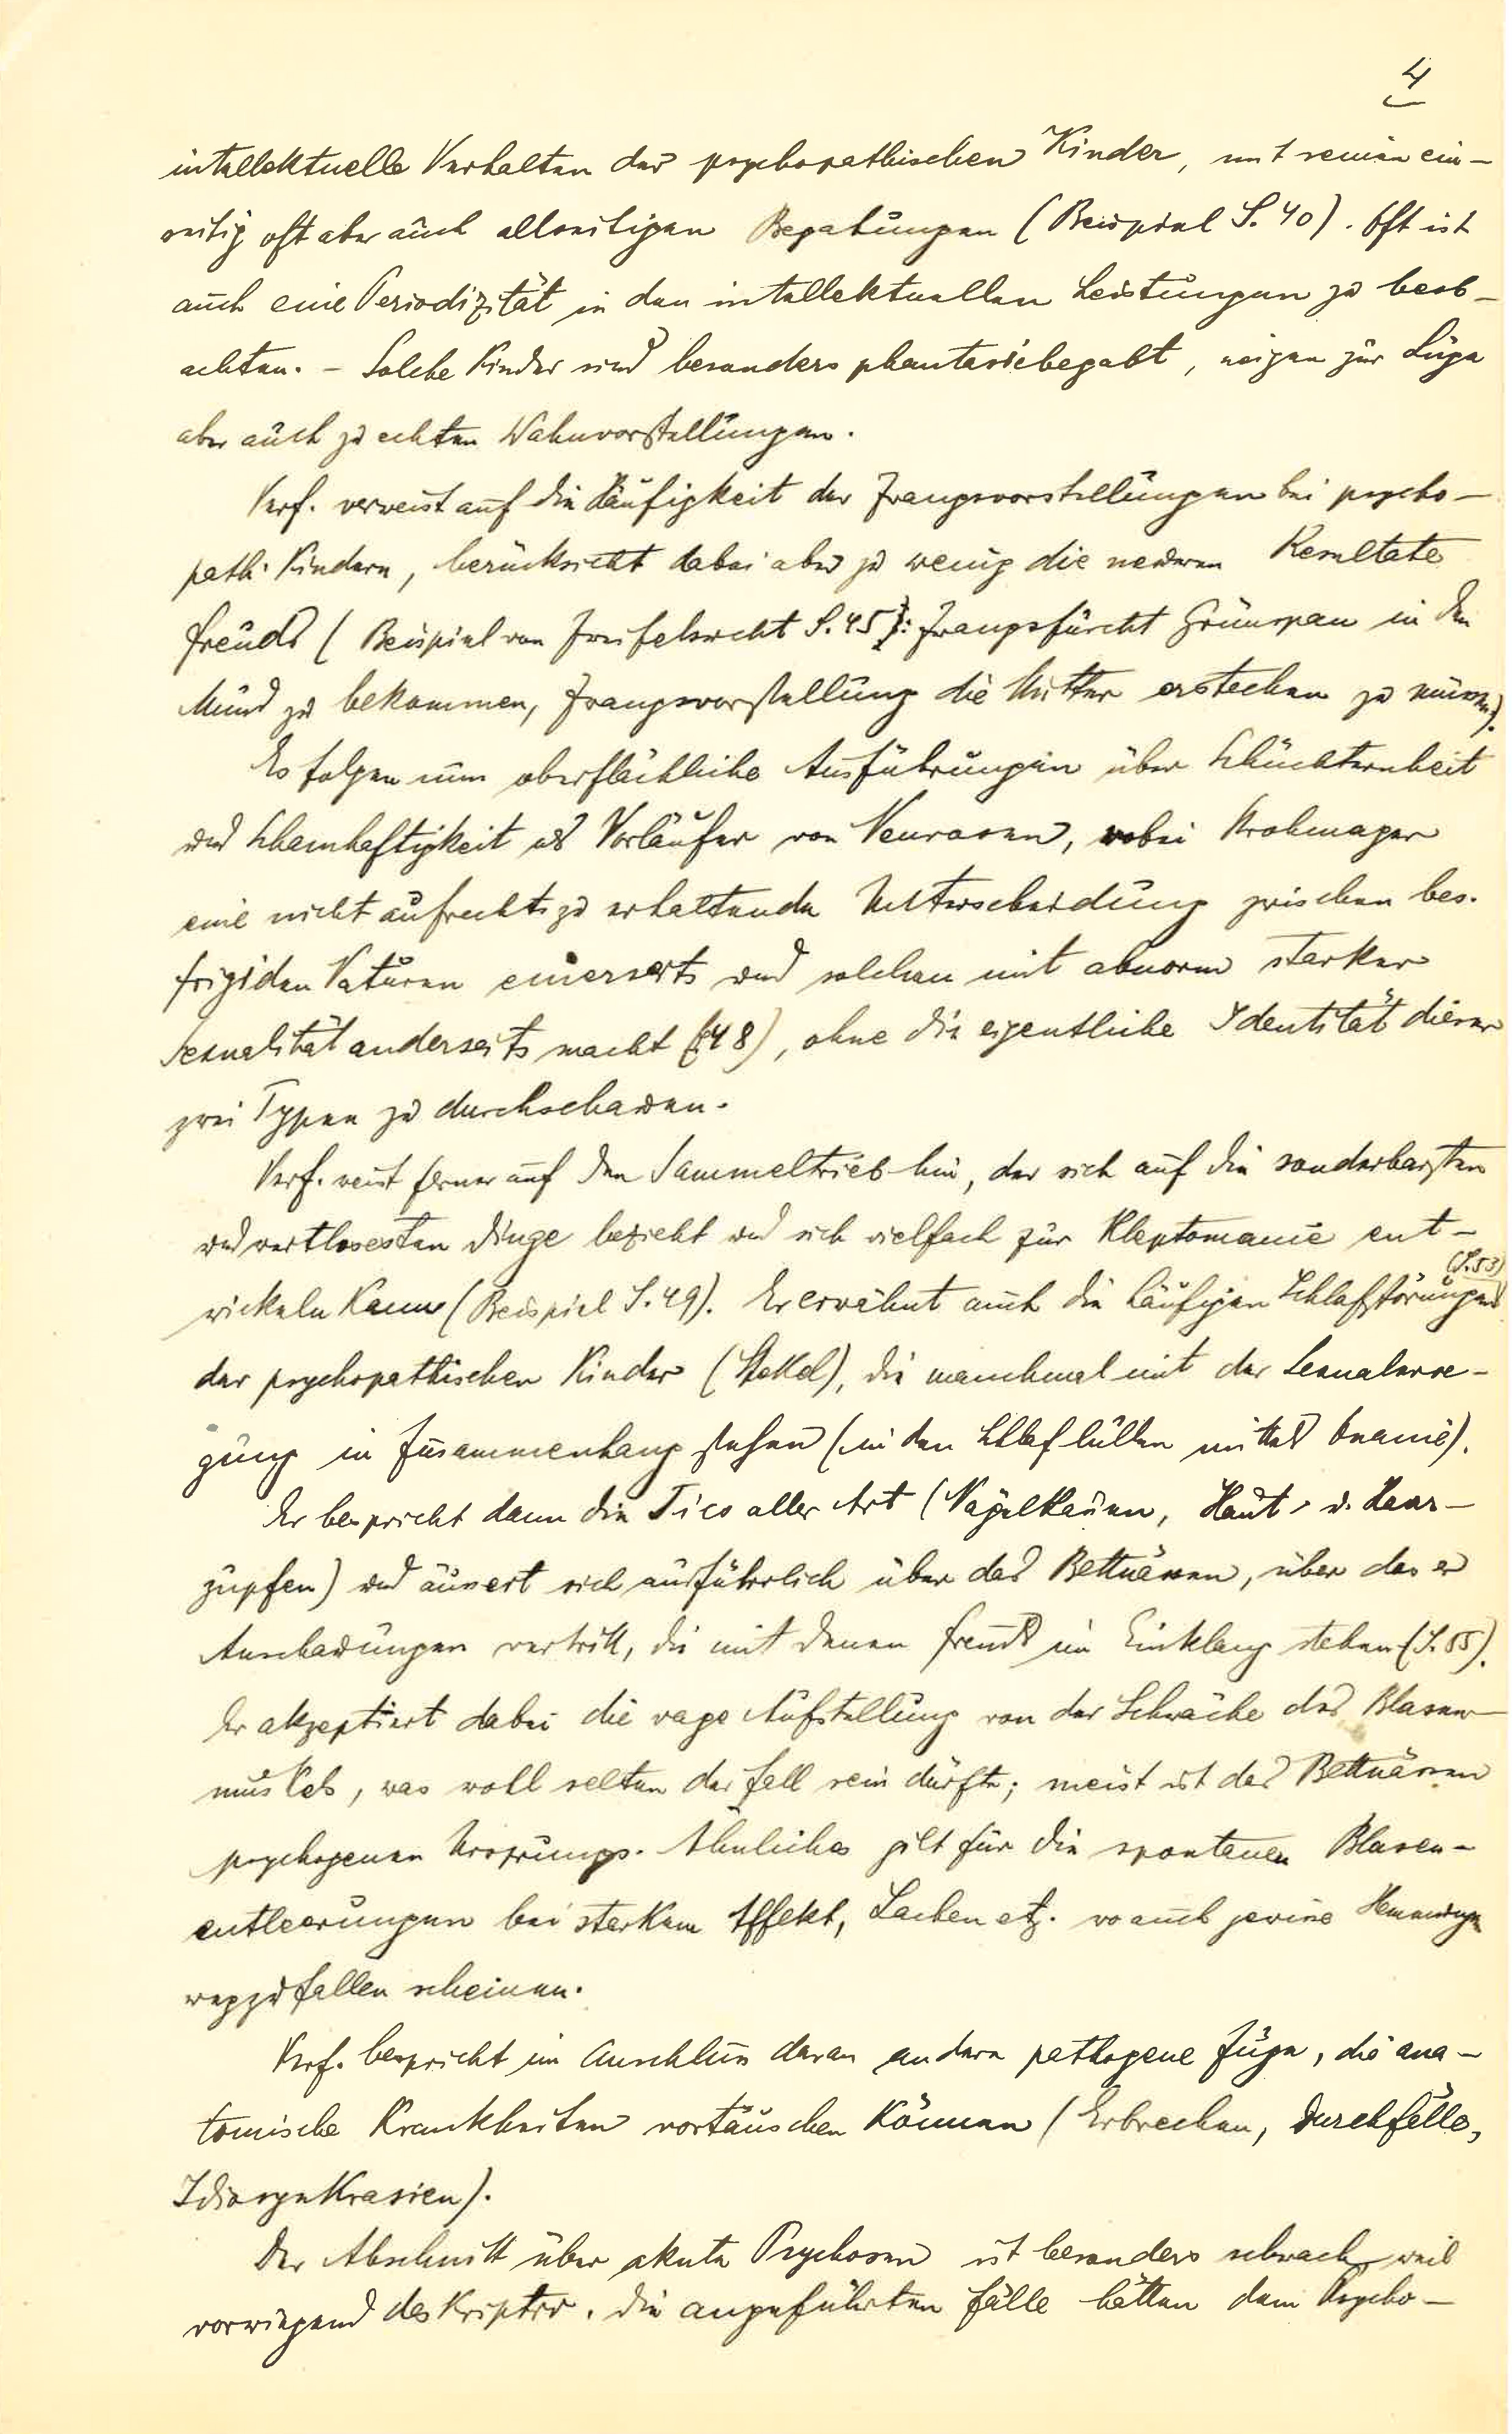 4
intellektuelle Verhalten der psychopathischen Kinder, mit seinen ein-
seitig oft aber auch allseitigen Begabungen (Beispiel S. 40). Oft ist
auch eine Periodizität in den intellektuellen Leistungen zu beob-
achten. – Solche Kinder sind besonders phantasiebegabt, neigen zur Lüge
aber auch zu echten Wahnvorstellungen.
Verf. verweist auf die Häufigkeit der Zwangsvorstellungen bei psycho-
path. Kindern, berücksicht dabei aber zu wenig die neueren Resultate
Freuds (Beispiel von Zweifelsucht S. 45): Zwangsfurcht Grünspan in den
Mund zu bekommen, Zwangsvorstellung die Mutter erstechen zu müssen).
Es folgen nun oberflächliche Ausführungen über Schüchternheit
und Schamhaftigkeit als Vorläufer von Neurosen, wobei Strohmayer
eine nicht aufrecht zu erhaltende Unterscheidung zwischen bes.
frigiden Naturen einerseits und solchen mit abnorm starker
Sexualität anderseits macht (S. 48), ohne die eigentliche Identität dieser
zwei Typen zu durchschauen.
Verf. weist ferner auf den Sammeltrieb hin, der sich auf die sonderbarsten
und wertlosesten Dinge bezieht und sich vielfach zur Kleptomanie ent-
wickeln kann (Beispiel S. 49). Er erwähnt auch die häufigen Schlafstörungen (S. 53)
der psychopathischen Kinder (Stekel), die manchmal mit der Sexualerre-
gung in Zusammenhang stehen (in den Schlaf lullen mittels Onanie).
Er bespricht dann die Tics aller Art (Nägelkauen, Haut- u. Haar-
zupfen) und äussert sich ausführlich über das Bettnässen, über das er
Anschauungen vertritt, die mit denen Freuds im Einklang stehen (S. 55).
Er akzeptiert dabei die vage Aufstellung von der Schwäche des Blasen-
muskels, was wohl selten der Fall sein dürfte; meist ist das Bettnässen
psychogenen Ursprungs. Ähnliches gilt für die spontanen Blasen-
entleerungen bei starkem Affekt, Lachen etz. wo auch gewisse Hemmungen
wegzufallen scheinen.
Verf. bespricht im Anschluss daran andere pathogene Züge, die ana-
tomische Krankheiten vortäuschen können (Erbrechen, Durchfälle,
Idiosynkrasien).
Der Abschnitt über akute Psychosen ist besonders schwach, weil
vorwiegend deskriptiv. Die angeführten Fälle hätten dem Psycho-